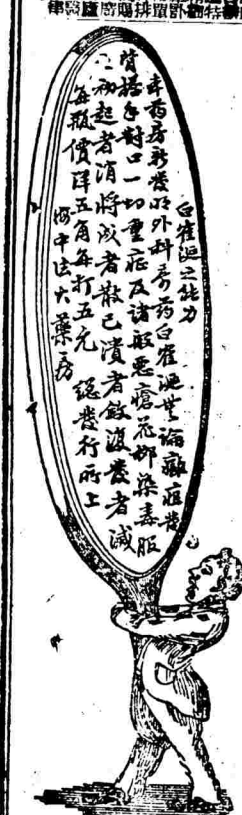 白雀涎之能力
本药房新發明外科奇药白雀涎無論癰疽發
背搭手對口一切重症及諸般悪瘡花柳染毒服
之初起者消將成者散已潰者斂復發者滅
每瓶價洋五角每打五元 總發行所上
海中法大藥房